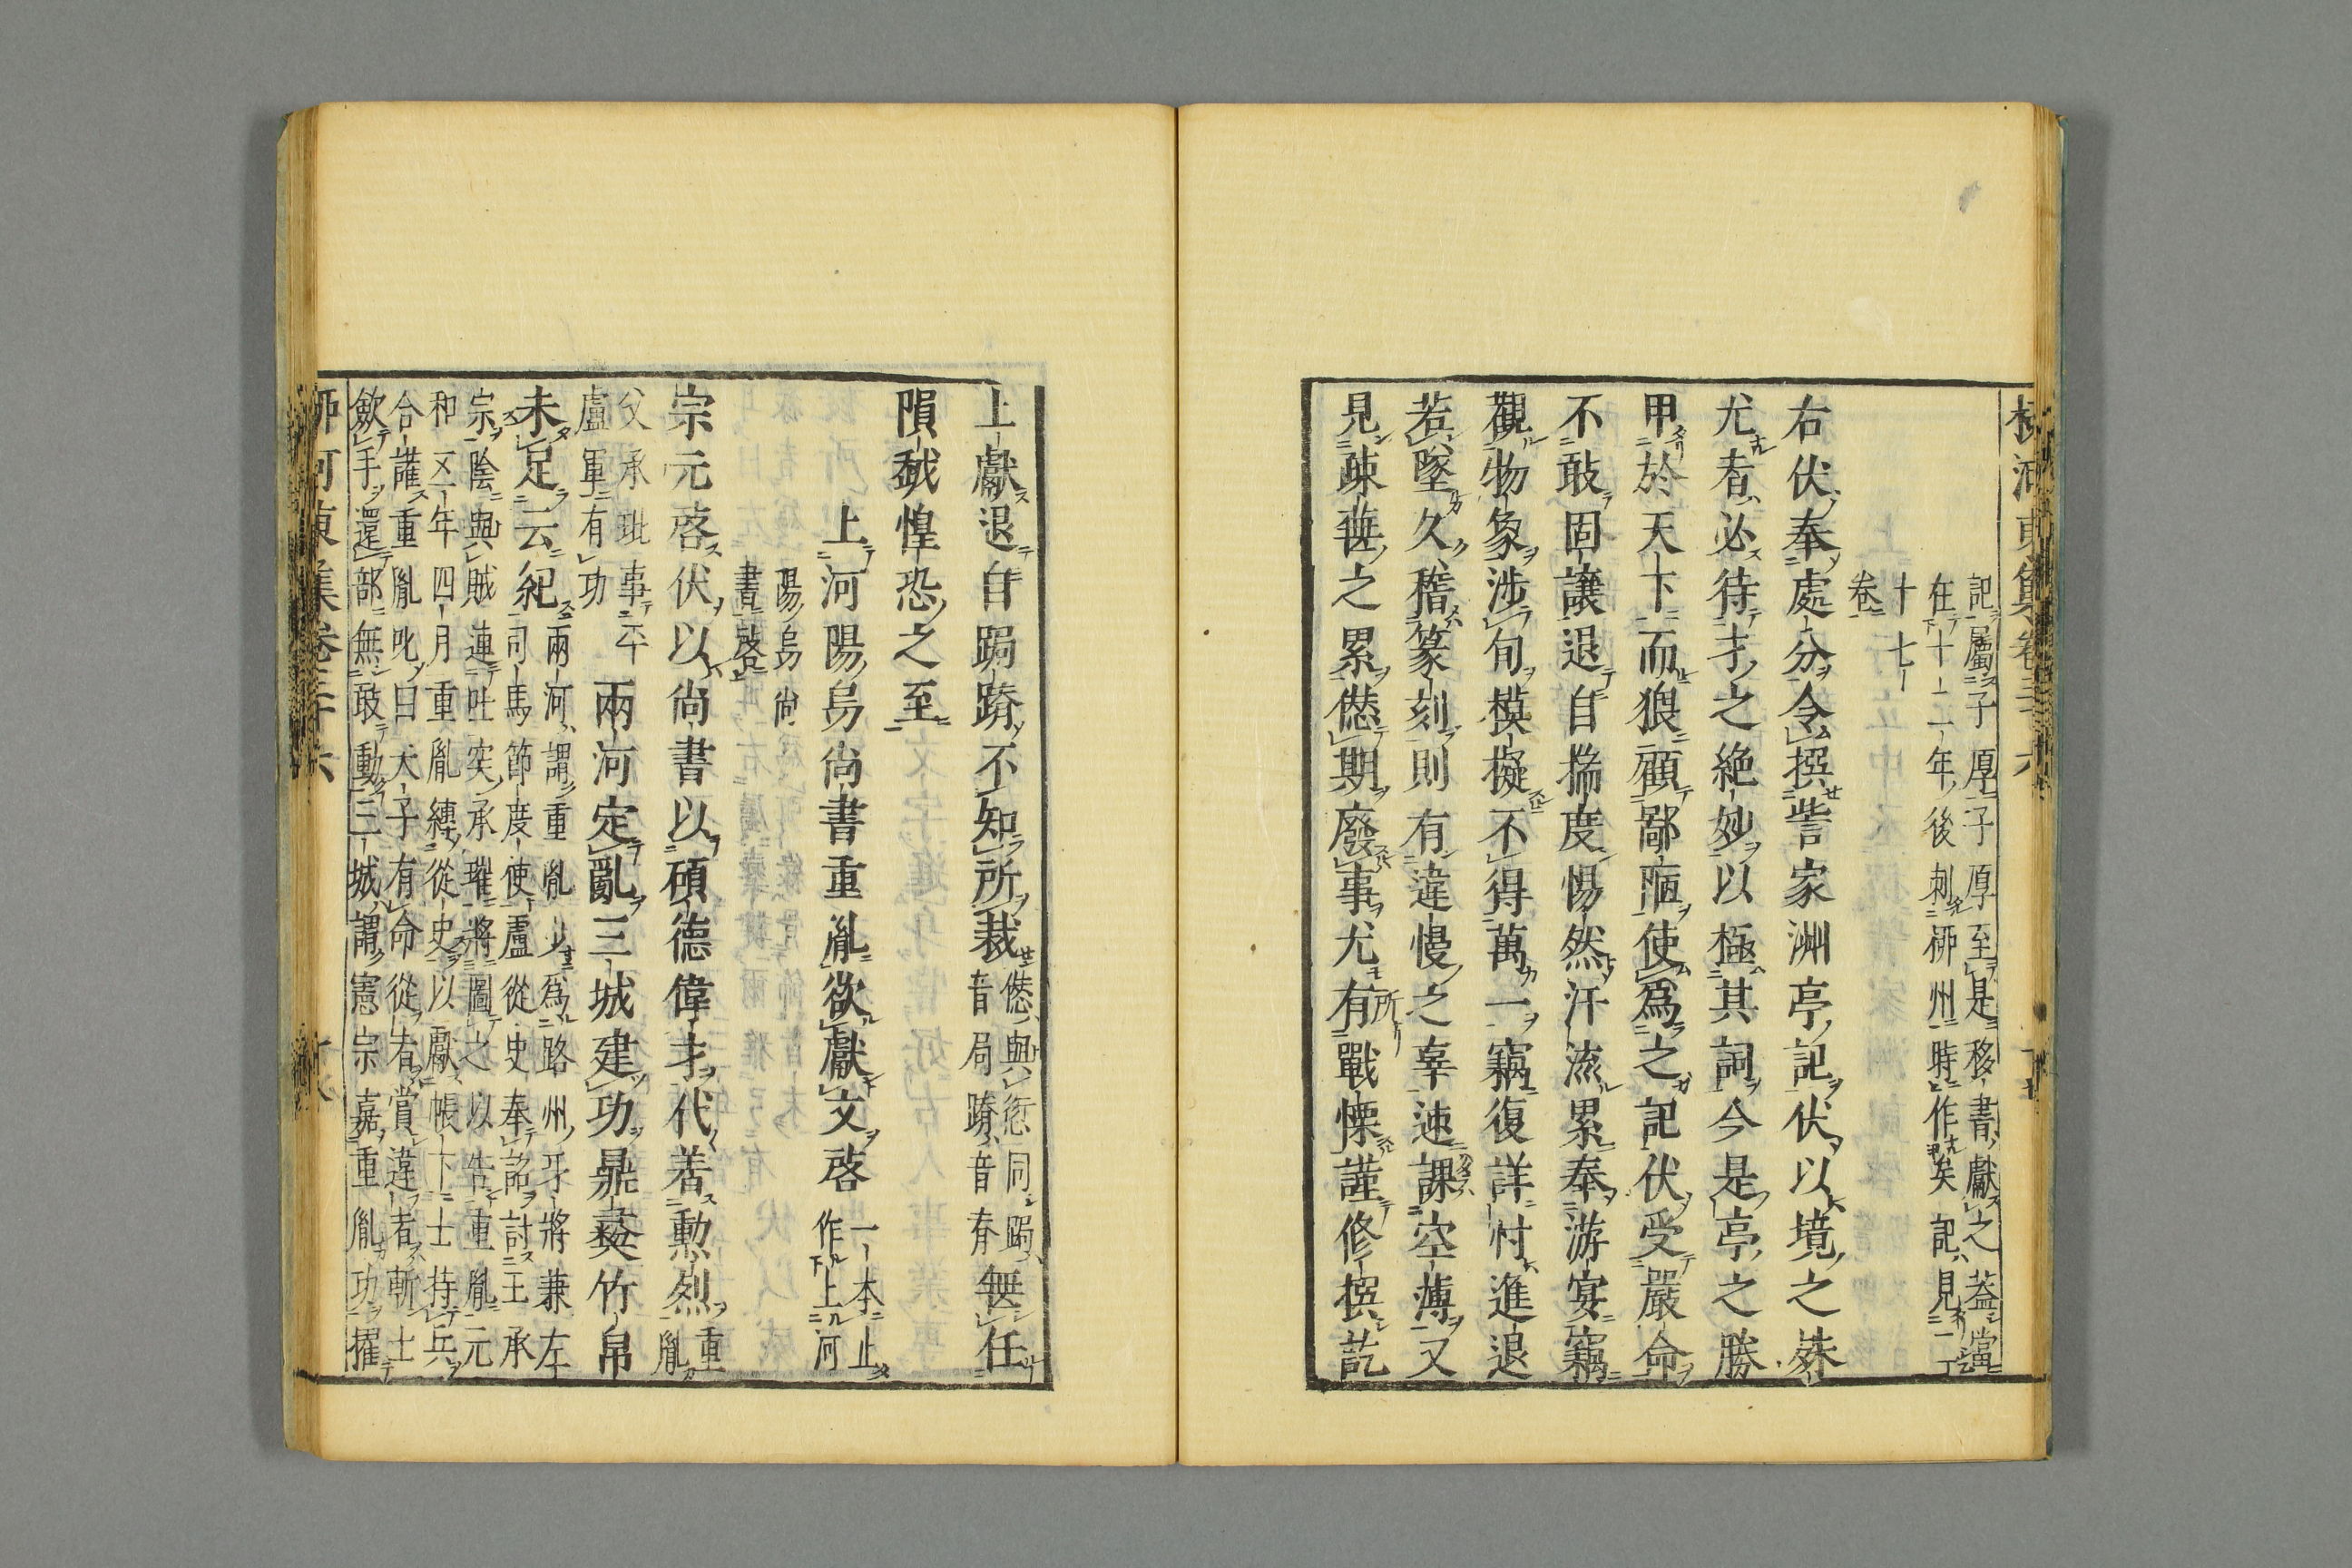 記屬子厚子厚至是移書獻之蓋當
在十二年後刺柳州時作矣記見二
十七
卷
右伏奉處分令撰訾家洲亭記伏以境之殊
尤者必待才之絶妙以極其詞今是亭之勝
甲於天下而猥顧鄙陋使爲之記伏受嚴命
不敢固讓退自揣度惕然汗流累奉游宴竊
觀物象涉旬模擬不得萬一竊復詳忖進退
若墜久稽篆刻則有違慢之辜速課空薄又
見疎蕪之累僽期廢事尤有所戰慄謹修撰訖
上獻退自跼蹐不知所裁
音局蹐音脊無任
隕越惶恐之至
上河陽烏尚書重胤欲獻文啓
一本止
作上河
陽烏尚
書啓
宗元啓伏以尚書以碩德偉才代著勳烈
重
胤
父承玼事平
盧軍有功
兩河定亂三城建功鼎彝竹帛
未足云紀
兩河謂重胤少爲潞州牙將兼左
司馬節度使盧從史奉詔討王承
宗陰與賊連吐突承璀將圖之以告重胤元
和五年四月重胤縛從史以獻帳下士持兵
合讙重胤叱曰天子有命從者賞違者斬士
歛手還部無敢動三城謂憲宗嘉重胤功擢
柳河東集卷三十六